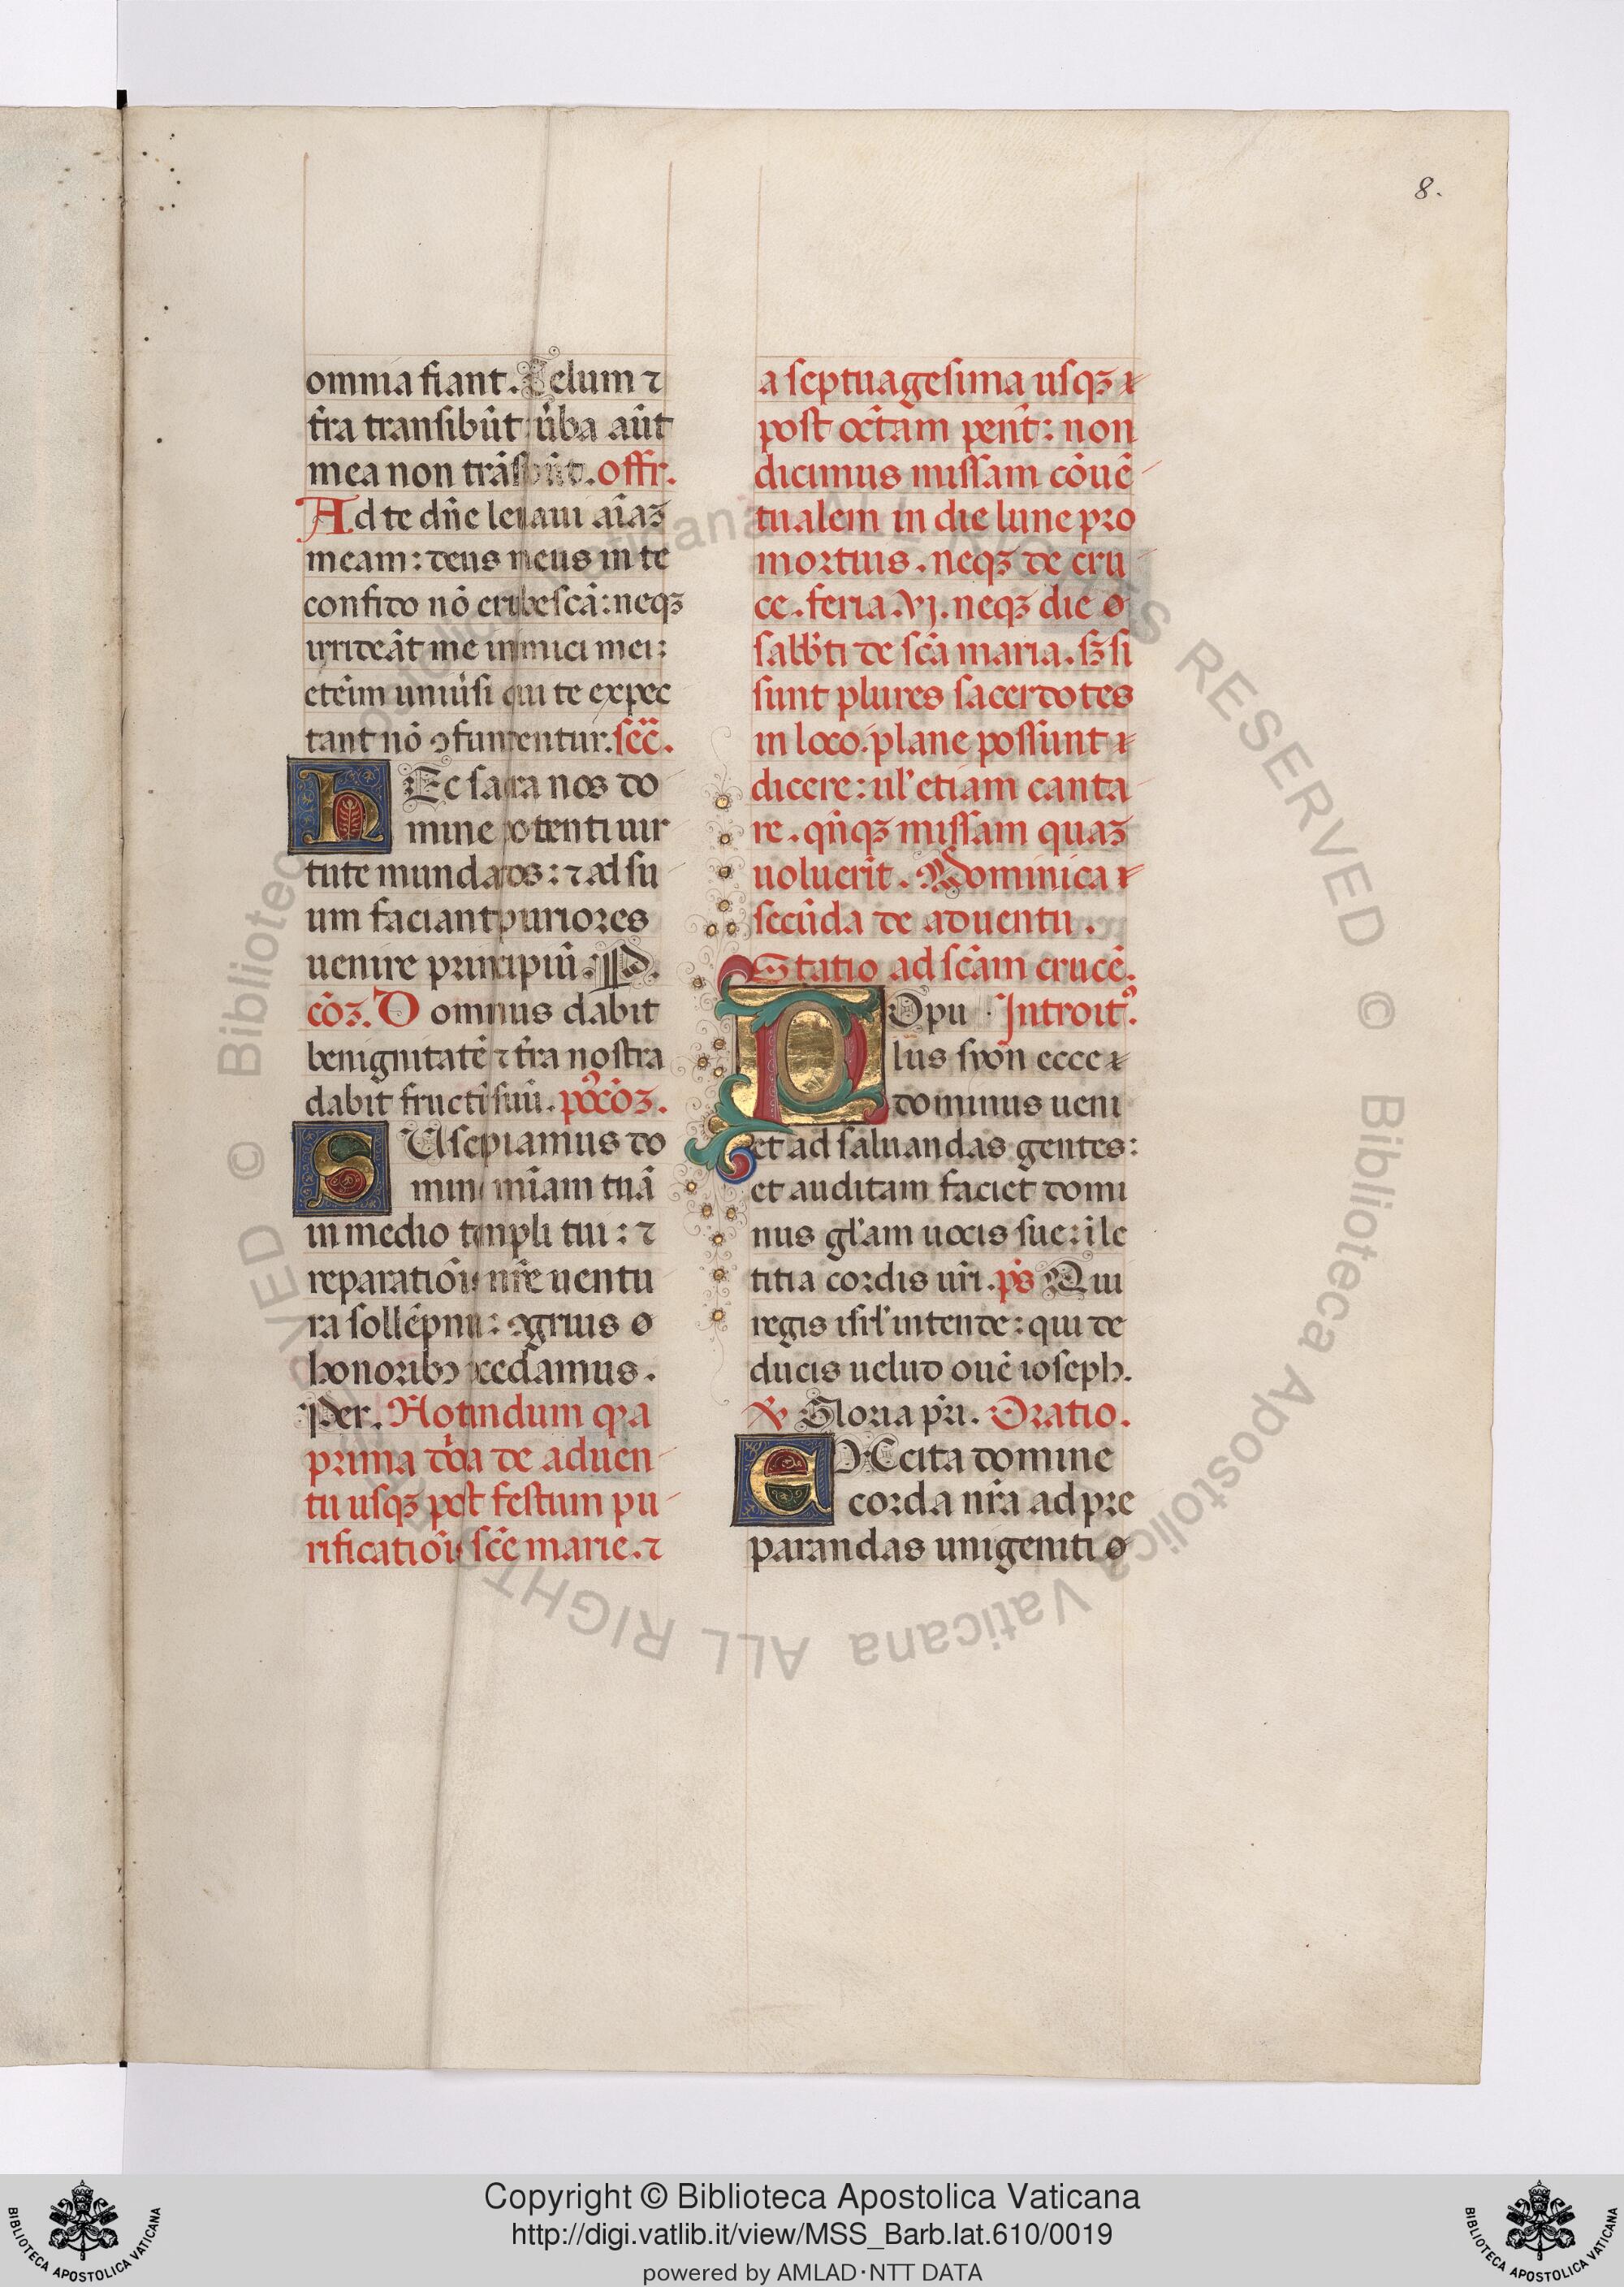 8.
omnia fiant. Celum ⁊
t̄ra transibūt u̾ba aūt
mea non trāsibūt. offr.
Ad te dn̄e leuaui aīaꝫ
meam: deus meus in te
confido nō erubescā: neqꝫ
irrideāt me inimici mei:
eteīm uniu̾si qui te expec
tant nō ꝯfundentur. sec̄.
HEc sacra nos do
mine potenti uir
tute mundatos: ⁊ ad su
um faciant puriores
uenire principiū. P.
cōꝫ. Dominus dabit
benignitatē ⁊ t̄ra nostra
dabit fructū suū. po᷒cōꝫ.
SUscipiamus do
mine mīam tuā
in medio templi tui: ⁊
reparatiōis nr̄e uentu
ra sollēpnia: ꝯgruis
honoribꝫ p̄cedamus.
Per. Notandum qꝫ a
prima dōa de aduen
tu usqꝫ post festum pu
rificatiōis scē marie. ⁊
a septuagesima usqꝫ
post octām pent̄: non
dicimus missam cōuē
tualem in die lune pro
mortuis. neqꝫ de cru
ce. feria. vj. neqꝫ die
sabb̄ti de scā maria. sꝫ si
sunt plures sacerdotes
in loco. plane possunt
dicere: ul̄ etiam canta
re. qn̄qꝫ missam quaꝫ
uoluerit. Dominica
secūda de aduentu.
Statio ad scām crucē.
POpu Introit᷒.
lus syon ecce
dominus ueni
et ad saluandas gentes:
et auditam faciet domi
nus gl̄am uocis sue: ī le
titia cordis ur̄i. ps̄ Qui
regis isrl̄ intende: qui de
ducis uelud ouē ioseph.
℣ Gloria pr̄i. Oratio.
EXcita domine
corda nr̄a ad pre
parandas unigeniti
© Biblioteca Apostolica Vaticana ALL RIGHTS RESERVED © Biblioteca Apostolica Vaticana ALL RIGHTS RESERVED
BIBLIOTECA APOSTOLICA VATICANA
Copyright © Biblioteca Apostolica Vaticana
http://digi.vatlib.it/view/MSS_Barb.lat.610/0019
powered by AMLAD·NTT DATA
BIBLIOTECA APOSTOLICA VATICANA